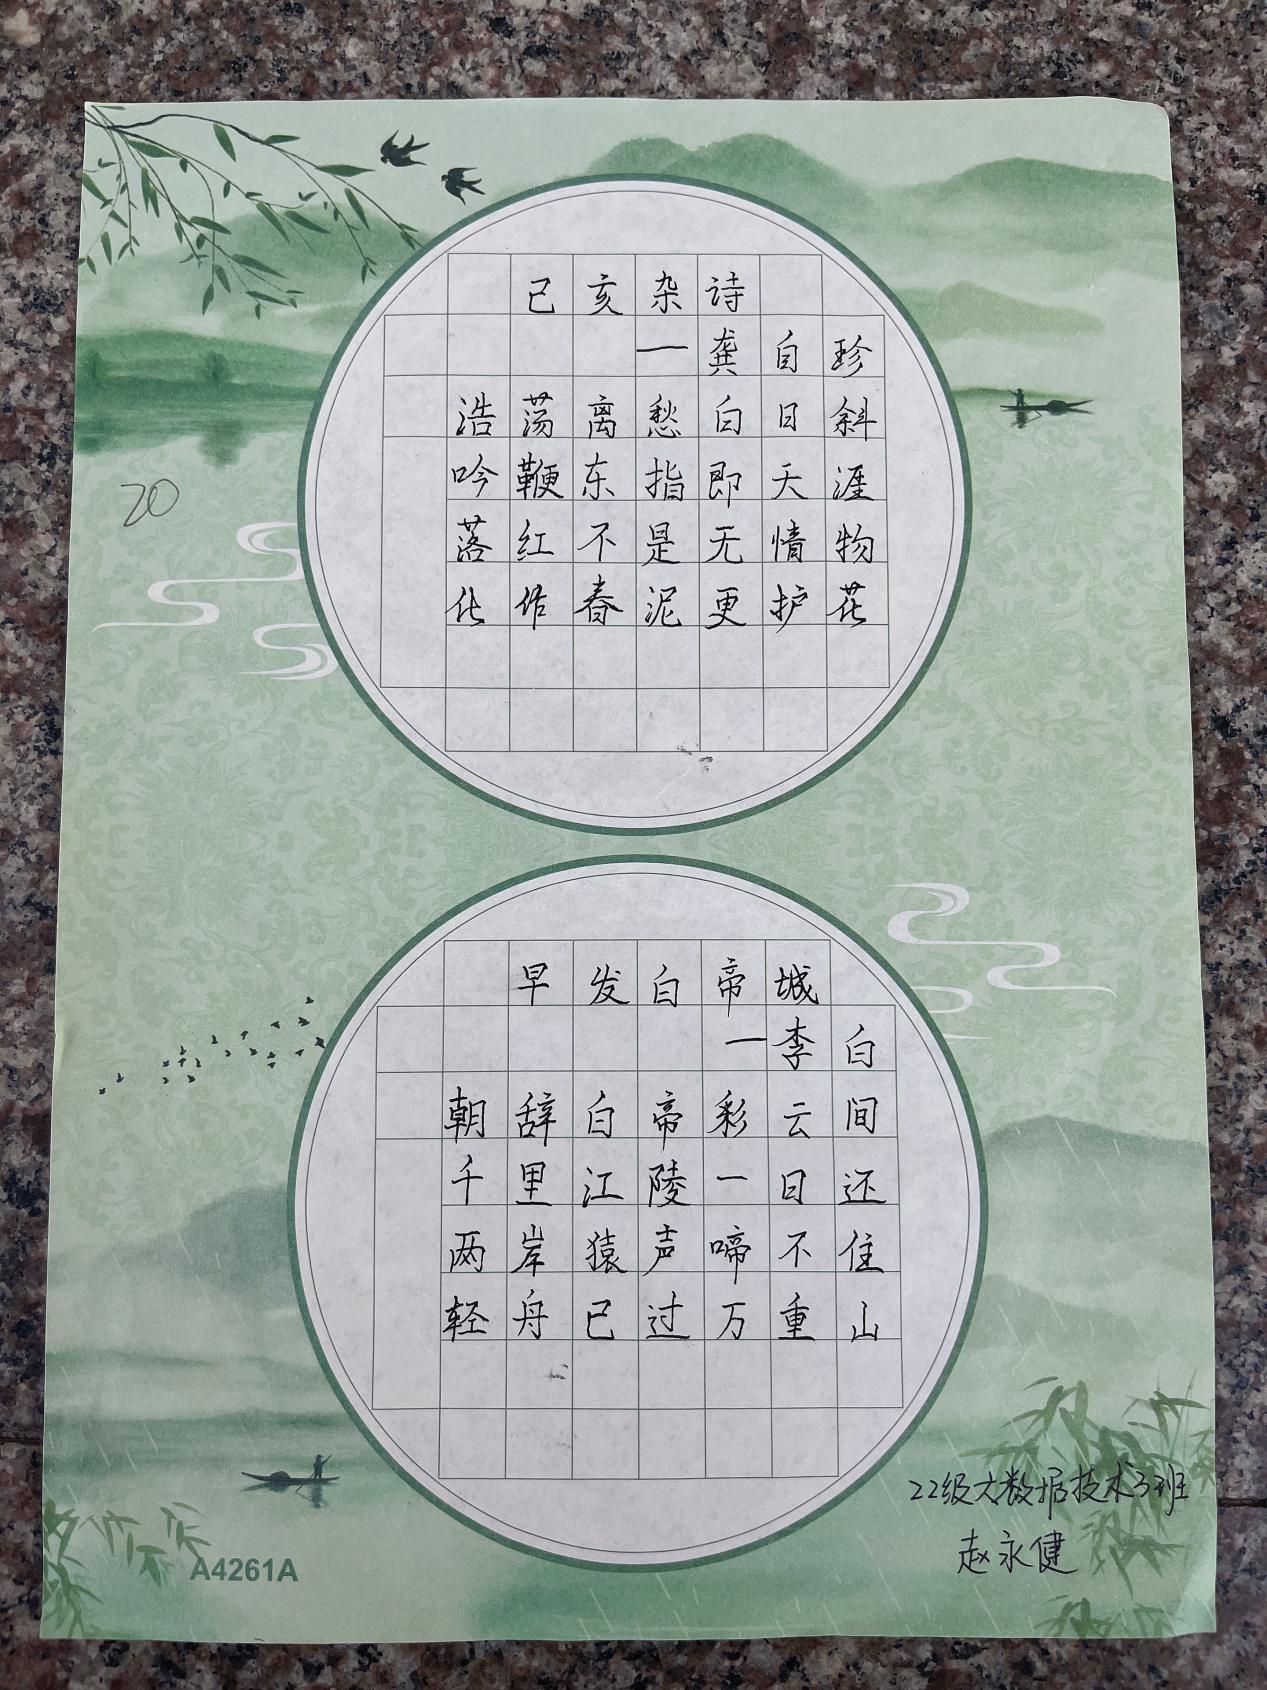 己亥杂诗
一龚自珍
浩荡离愁白日斜
吟鞭东指即天涯
落红不是无情物
化作春泥更护花
20
早发白帝城
一李白
朝辞白帝彩云间
千里江陵一日还
两岸猿声啼不住
轻舟已过万重山
22级大数据技术3班
赵永健
A4261A